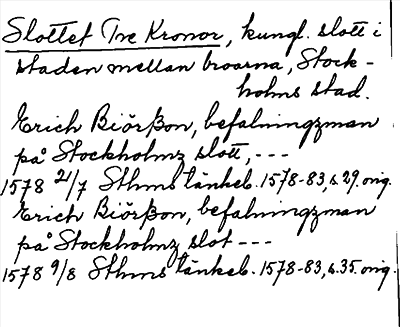 Slottet Tre Kronor, kungl. slott i
staden mellan broarna, Stock-
holms stad.
Erich Biörßon, befalningzman
på Stockholmz slott, ---
1578 21/7 Sthms tänkeb. 1578-83, s. 29. orig.
Erich Biörßon, befalningzman
på Stockholmz slot ---
1578 9/8 Sthms tänkeb. 1578-83, s. 35. orig.